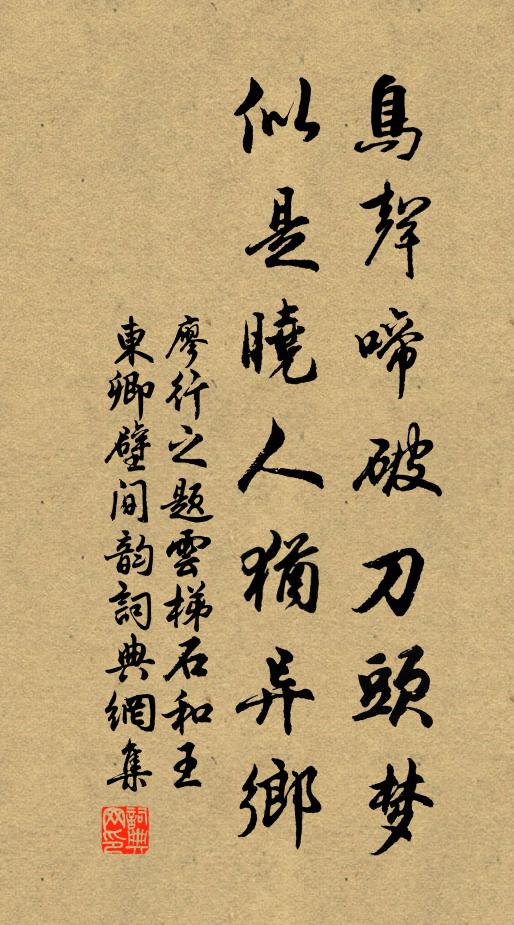 鳥聲啼破刀頭梦
似是曉人猶异鄉
廖行之题雲梯石和王
東卿壁间韵詞典網集
詞典網印